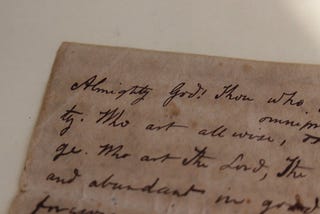 Almighty God! Thou who
omnip
ty. Who art all wise,
ge. Who art the Lord, the
and abundant in good